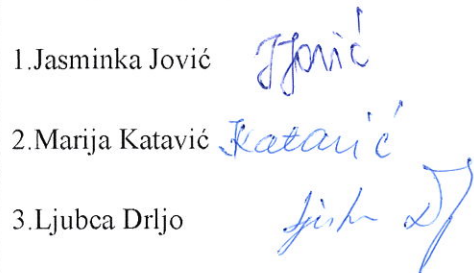 1.Jasminka Jović JJović
2.Marija Katavić Katavić
3.Ljubca Drljo